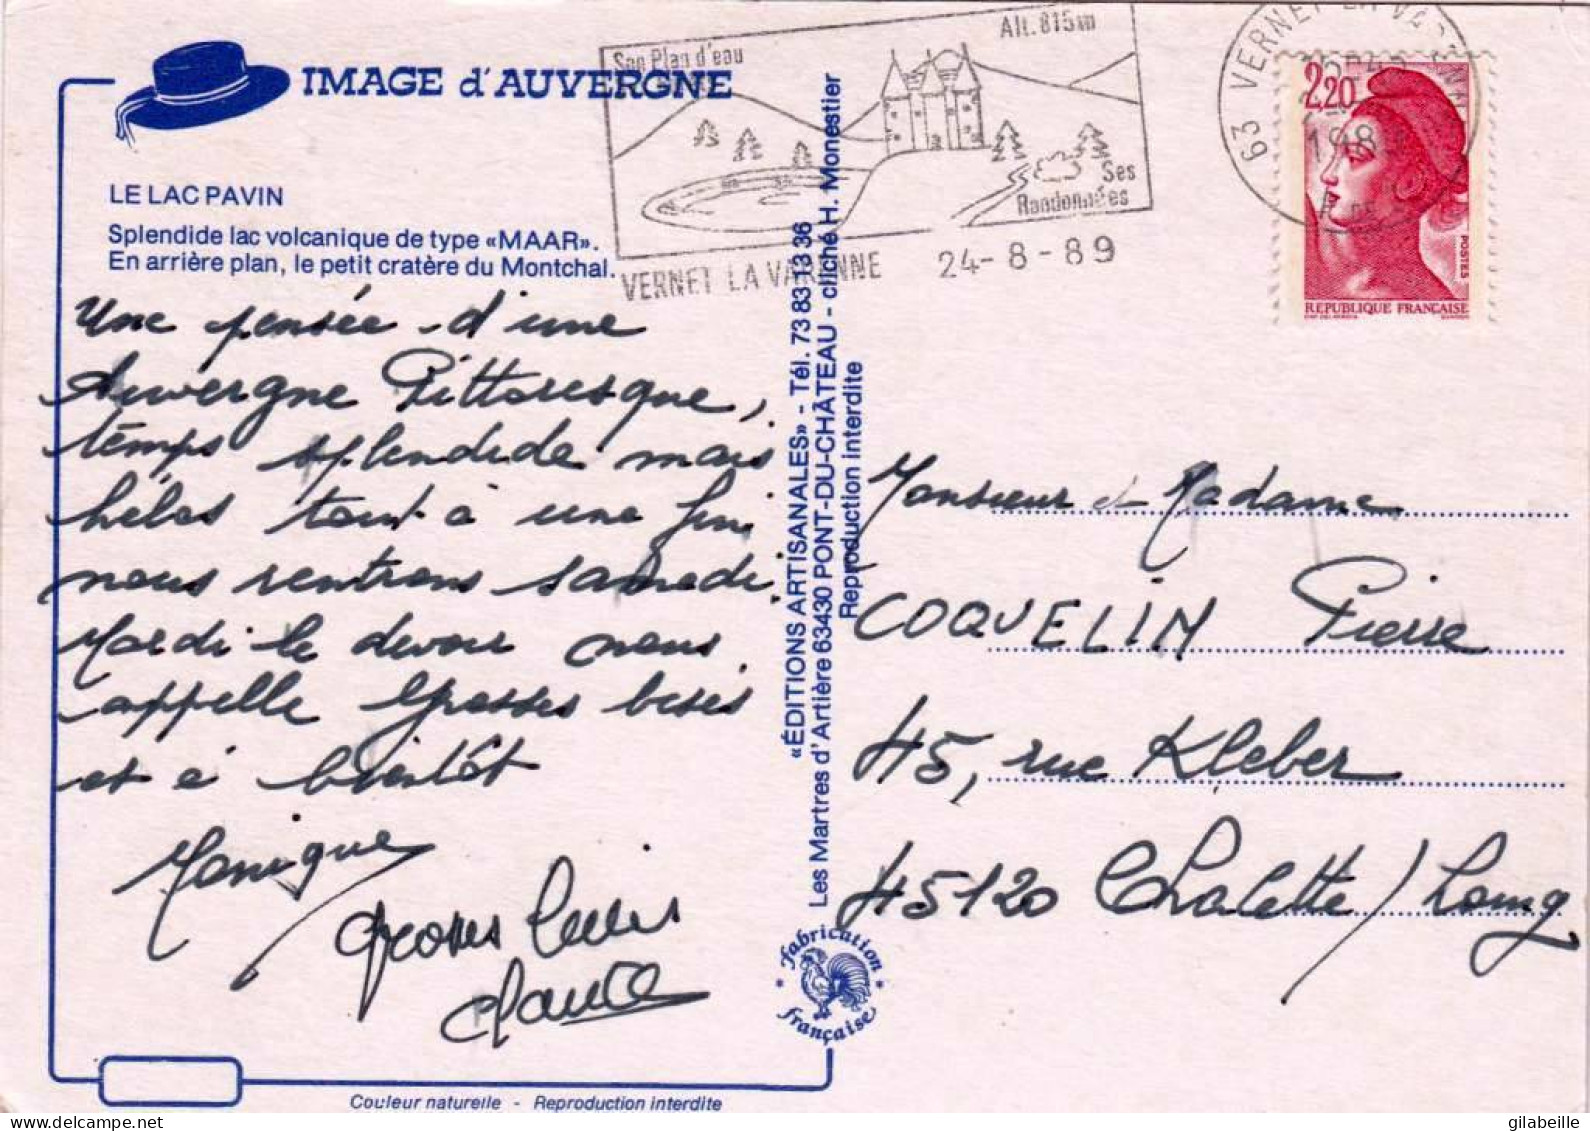 IMAGE d'AUVERGNE
LE LAC PAVIN
Splendide lac volcanique de type «MAAR».
En arrière plan, le petit cratère du Montchal.
Une pensée d'une
Auvergne Pittoresque,
temps splendide mais
hélas tout à une fin
nous rentrons samedi.
Mardi le devoir nous
appelle Grosses bises
et à bientôt
Monique
Grosses bises
Claude
Son Plan d'eau
Alt. 815m
Ses
Randonnées
VERNET LA VARENNE 24-8-89
63 VERNET LA VARENNE
1989
2,20
POSTES
REPUBLIQUE FRANÇAISE
«ÉDITIONS ARTISANALES» - Tél. 73 83 13 36
Les Martres d'Artière 63430 PONT-DU-CHÂTEAU - cliché H. Monestier
Reproduction interdite
Monsieur et Madame
COQUELIN Pierre
45, rue Kleber
45120 Chalette/Loing
Fabrication
française
Couleur naturelle - Reproduction interdite
gilabeille